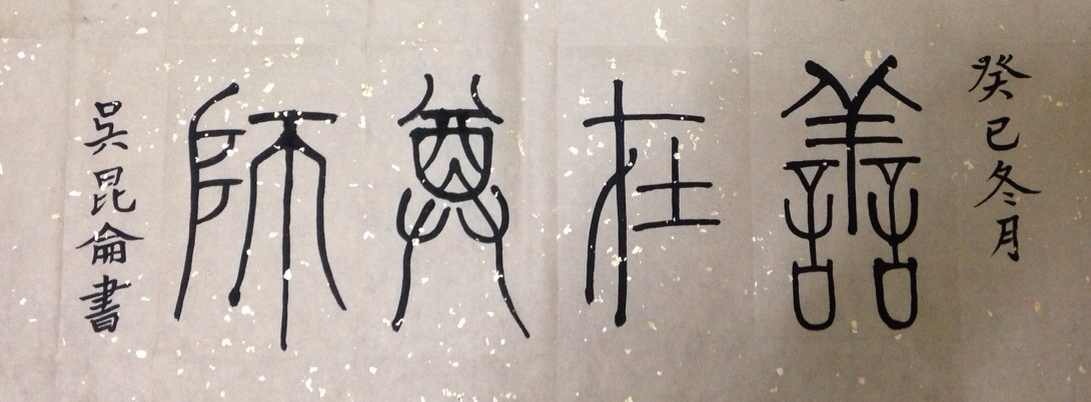 癸巳冬月
善在尊師
吳昆侖書